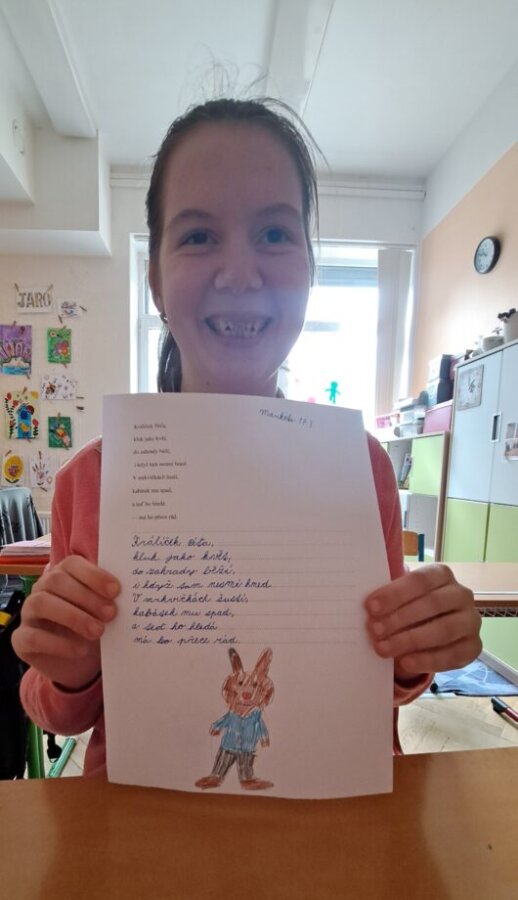 JARO
Markéta
Králíček
kluk jako
do zahrady běží,
i když tam nesmí hned
V mrkvičkách šustí,
kabátek mu spad,
a teď ho hledá
— má ho přece rád.
Králíček
kluk jako květ,
do zahrady běží,
i když tam nesmí hned
V mrkvičkách šustí,
kabásek mu spad,
a teď ho hledá
má ho přece rád.